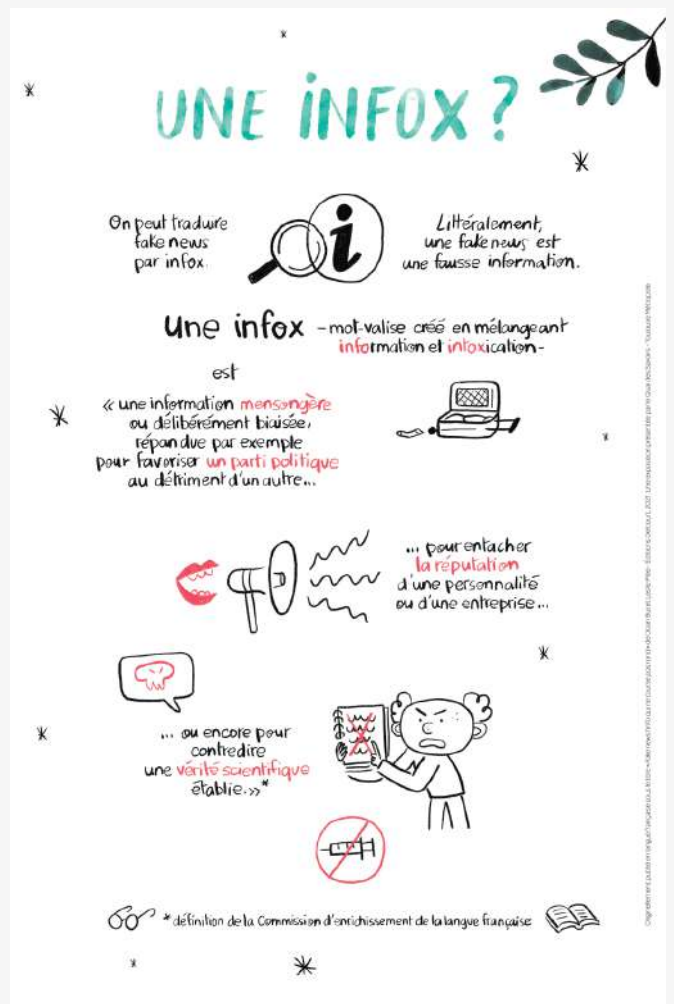 UNE INFOX ?
On peut traduire
fake news
par infox.
Littéralement,
une fake news est
une fausse information.
Une infox – mot-valise créé en mélangeant
information et intoxication –
est
« une information mensongère
ou délibérément biaisée,
répandue par exemple
pour favoriser un parti politique
au détriment d'un autre...
... pour entacher
la réputation
d'une personnalité
ou d'une entreprise...
... ou encore pour
contredire
une vérité scientifique
établie.»*
* définition de la Commission d'enrichissement de la langue française